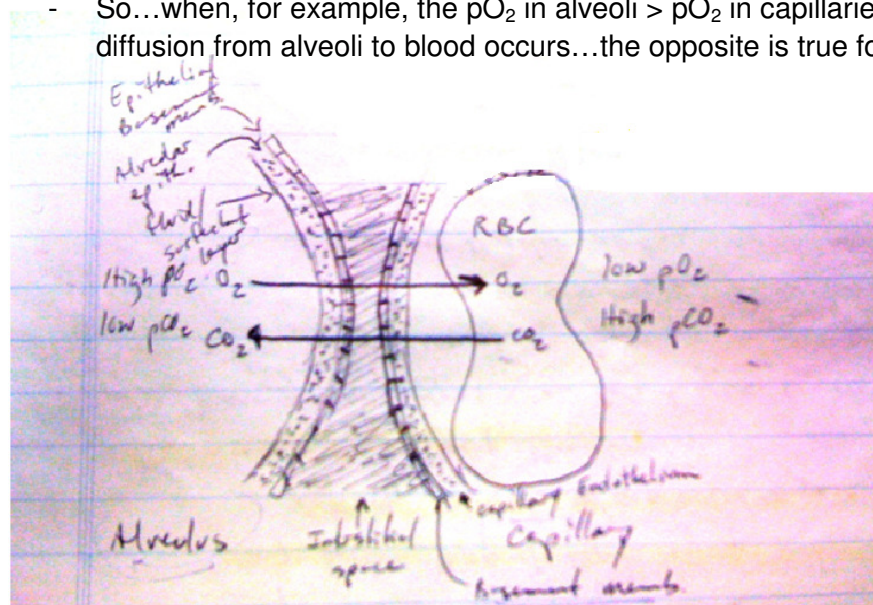 - So…when, for example, the pO₂ in alveoli > pO₂ in capillarie
diffusion from alveoli to blood occurs…the opposite is true fo
Epithelial
Basement
memb.
Alveolar
epith.
fluid/
surfactant
layer
High pO₂ O₂
low pCO₂ CO₂
RBC
O₂
CO₂
low pO₂
High pCO₂
Alveolus
Interstitial
space
capillary Endothelium
Capillary
Basement memb.